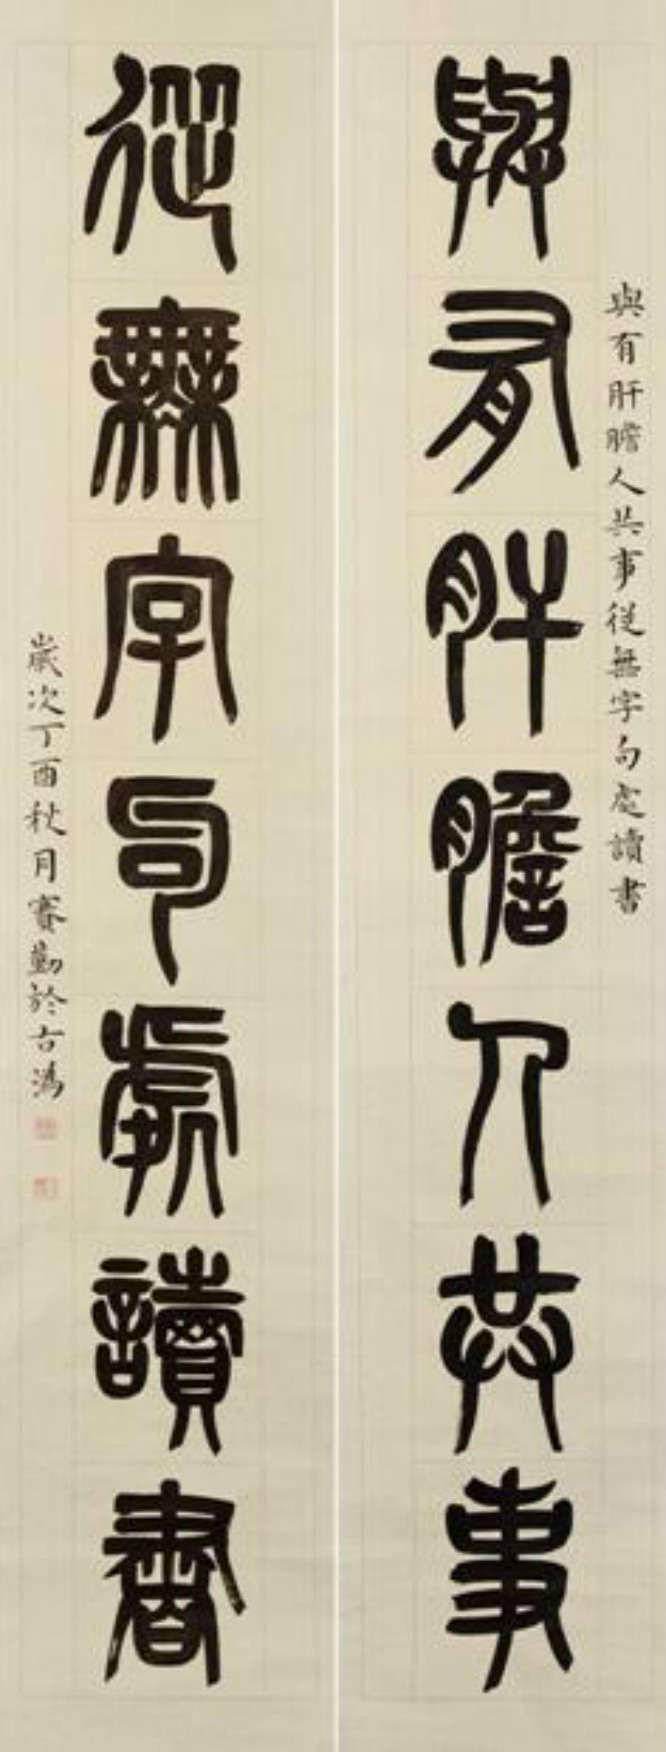 與有肝膽人共事從無字句處讀書
與有肝膽人共事
從無字句處讀書
歲次丁酉秋月賽勤於古